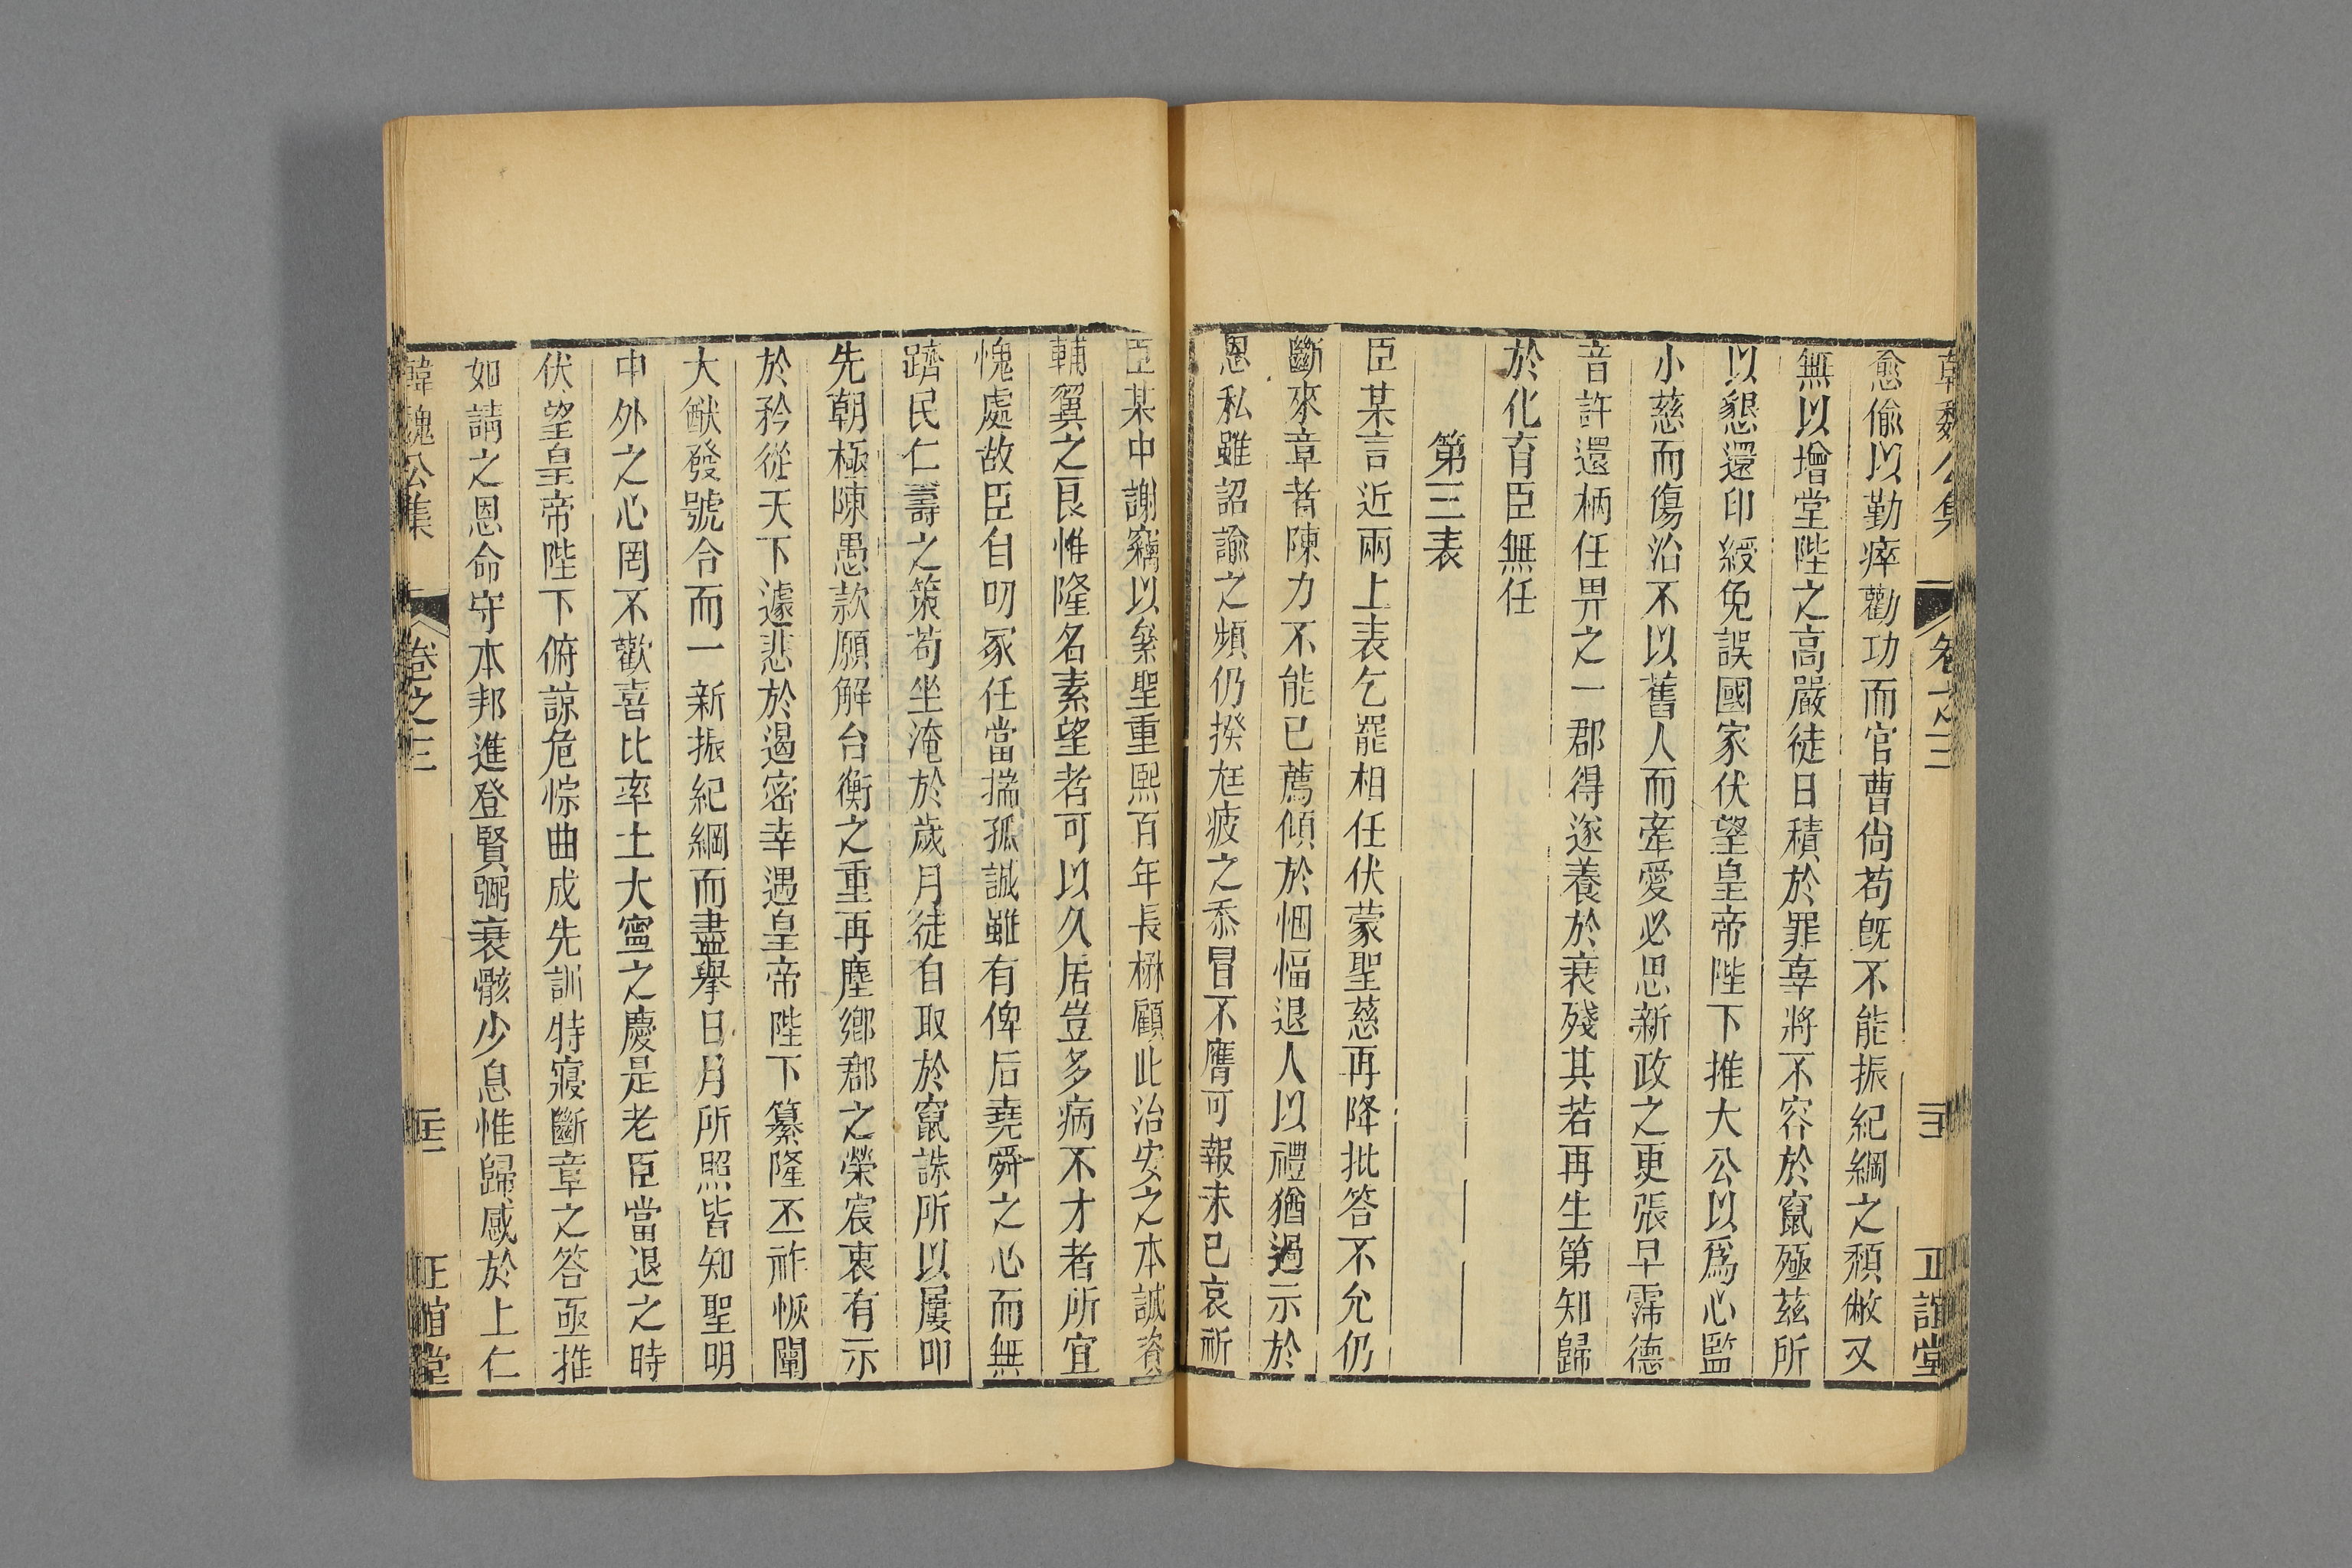 韓魏公集 卷之三 三十 正誼堂
愈偷以勤瘁勸功而官曹尙苟旣不能振紀綱之頹敝又
無以增堂陛之高嚴徒日積於罪辜將不容於竄殛兹所
以懇還印綬免誤國家伏望皇帝陛下推大公以爲心監
小慈而傷治不以舊人而牽愛必思新政之更張早霈德
音許還柄任畀之一郡得遂養於衰殘其若再生第知歸
於化育臣無任
第三表
臣某言近兩上表乞罷相任伏蒙聖慈再降批答不允仍
斷來章者陳力不能已薦傾於悃愊退人以禮猶過示於
恩私雖詔諭之頻仍揆尫疲之忝冒不膺可報未已哀祈
臣某中謝竊以絫聖重熙百年長楙顧此治安之本誠資
輔翼之良惟隆名素望者可以久居豈多病不才者所宜
愧處故臣自叨冢任當揣孤誠雖有俾后堯舜之心而無
躋民仁壽之策苟坐淹於歲月徒自取於竄誅所以屢叩
先朝極陳愚款願解台衡之重再塵鄉郡之榮宸衷有示
於矜從天下遽悲於遏密幸遇皇帝陛下纂隆丕祚恢闡
大猷發號令而一新振紀綱而盡舉日月所照皆知聖明
中外之心罔不歡喜比率土大寧之慶是老臣當退之時
伏望皇帝陛下俯諒危悰曲成先訓特寢斷章之答亟推
如請之恩命守本邦進登賢弼衰骸少息惟歸感於上仁
韓魏公集 卷之三 正誼堂